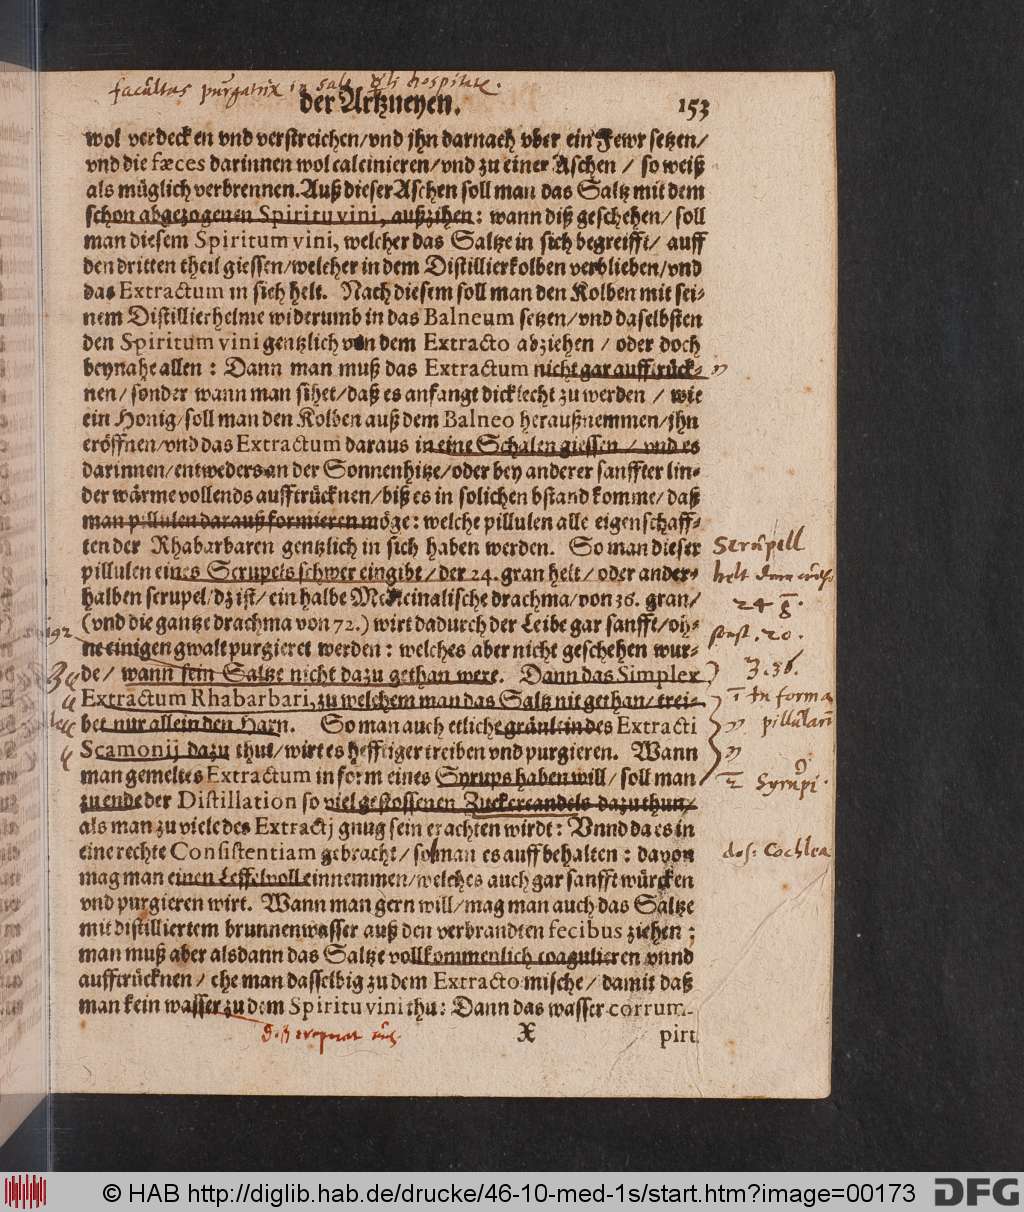 facultas purgatrix in sale
der Artzneyen. 153
wol verdecken vnd verstreichen/vnd jhn darnach vber ein Fewr setzen/
vnd die fæces darinnen wol calcinieren/vnd zu einer Aschen / so weiß
als müglich verbrennen. Auß dieser Aschen soll man das Saltz mit dem
schon abgezogenen Spiritu vini, außzihen: wann diß geschehen/ soll
man diesem Spiritum vini, welcher das Saltze in sich begreifft/ auff
den dritten theil giessen/welcher in dem Distillierkolben verblieben/vnd
das Extractum in sich helt. Nach diesem soll man den Kolben mit sei-
nem Distillierhelme widerumb in das Balneum setzen/vnd daselbsten
den Spiritum vini gentzlich von dem Extracto abziehen / oder doch
beynahe allen : Dann man muß das Extractum nicht gar aufftrück-
nen/ sonder wann man sihet/daß es anfangt dicklecht zu werden / wie
ein Honig/soll man den Kolben auß dem Balneo heraußnemmen/jhn
eröffnen/vnd das Extractum daraus in eine Schalen giessen / vnd es
darinnen/entweders an der Sonnenhitze/oder bey anderer sanffter lin-
der wärme vollends aufftrücknen/biß es in solichen bstand komme/daß
man pillulen darauß formieren möge: welche pillulen alle eigenschaff-
ten der Rhabarbaren gentzlich in sich haben werden. So man dieser
pillulen eines Scrupels schwer eingibt/der 24. gran helt/oder ander-
halben scrupel/dz ist/ein halbe Medicinalische drachma/von 36. gran/
(vnd die gantze drachma von 72.) wirt dadurch der Leibe gar sanfft/oh-
ne einigen gwalt purgieret werden: welches aber nicht geschehen wur-
de/ wann sein Saltze nicht dazu gethan were. Dann das Simplex
Extractum Rhabarbari, zu welchem man das Saltz nit gethan/trei-
bet nur allein den Harn. So man auch etliche gränlein des Extracti
Scamonij dazu thut/wirt es hefftiger treiben vnd purgieren. Wann
man gemeltes Extractum in form eines Syrups haben will/ soll man
zu ende der Distillation so viel gestossenen Zuckercandels dazu thun/
als man zu viele des Extractj gnug sein erachten wirdt: Vnnd da es in
eine rechte Consistentiam gebracht/ sol man es auffbehalten : davon
mag man einen Leffelvoll einnemmen/welches auch gar sanfft würcken
vnd purgieren wirt. Wann man gern will/mag man auch das Saltze
mit distilliertem brunnenwasser auß den verbrandten fecibus ziehen :
man muß aber alsdann das Saltze vollkommenlich coagulieren vnnd
aufftrücknen/ ehe man dasselbig zu dem Extracto mische/ damit daß
man kein wasser zu dem Spiritu vini thu: Dann das wasser corrum-
X pirt
helt
24 g̃
.20.
3.36.
in forma
Syrupi.
dos: Cochlea
© HAB http://diglib.hab.de/drucke/46-10-med-1s/start.htm?image=00173
DFG